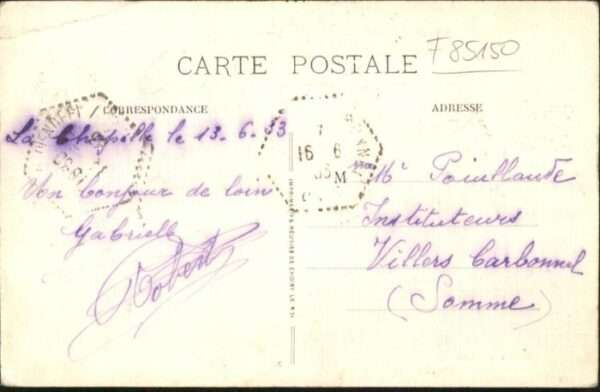 F85150
CARTE POSTALE
CORRESPONDANCE
ADRESSE
La Chapelle le 13.6.33
Un bonjour de loin
Gabrielle
Robert
16 6
Mr Pointlaude
Instituteurs
Villers Carbonnel
(Somme)